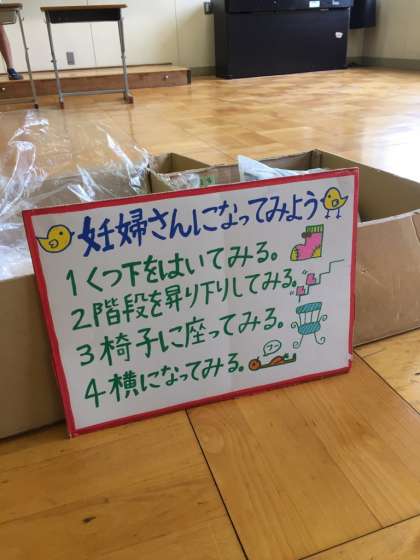 妊婦さんになってみよう
1くつ下をはいてみる。
2階段を昇り下りしてみる。
3椅子に座ってみる。
4横になってみる。